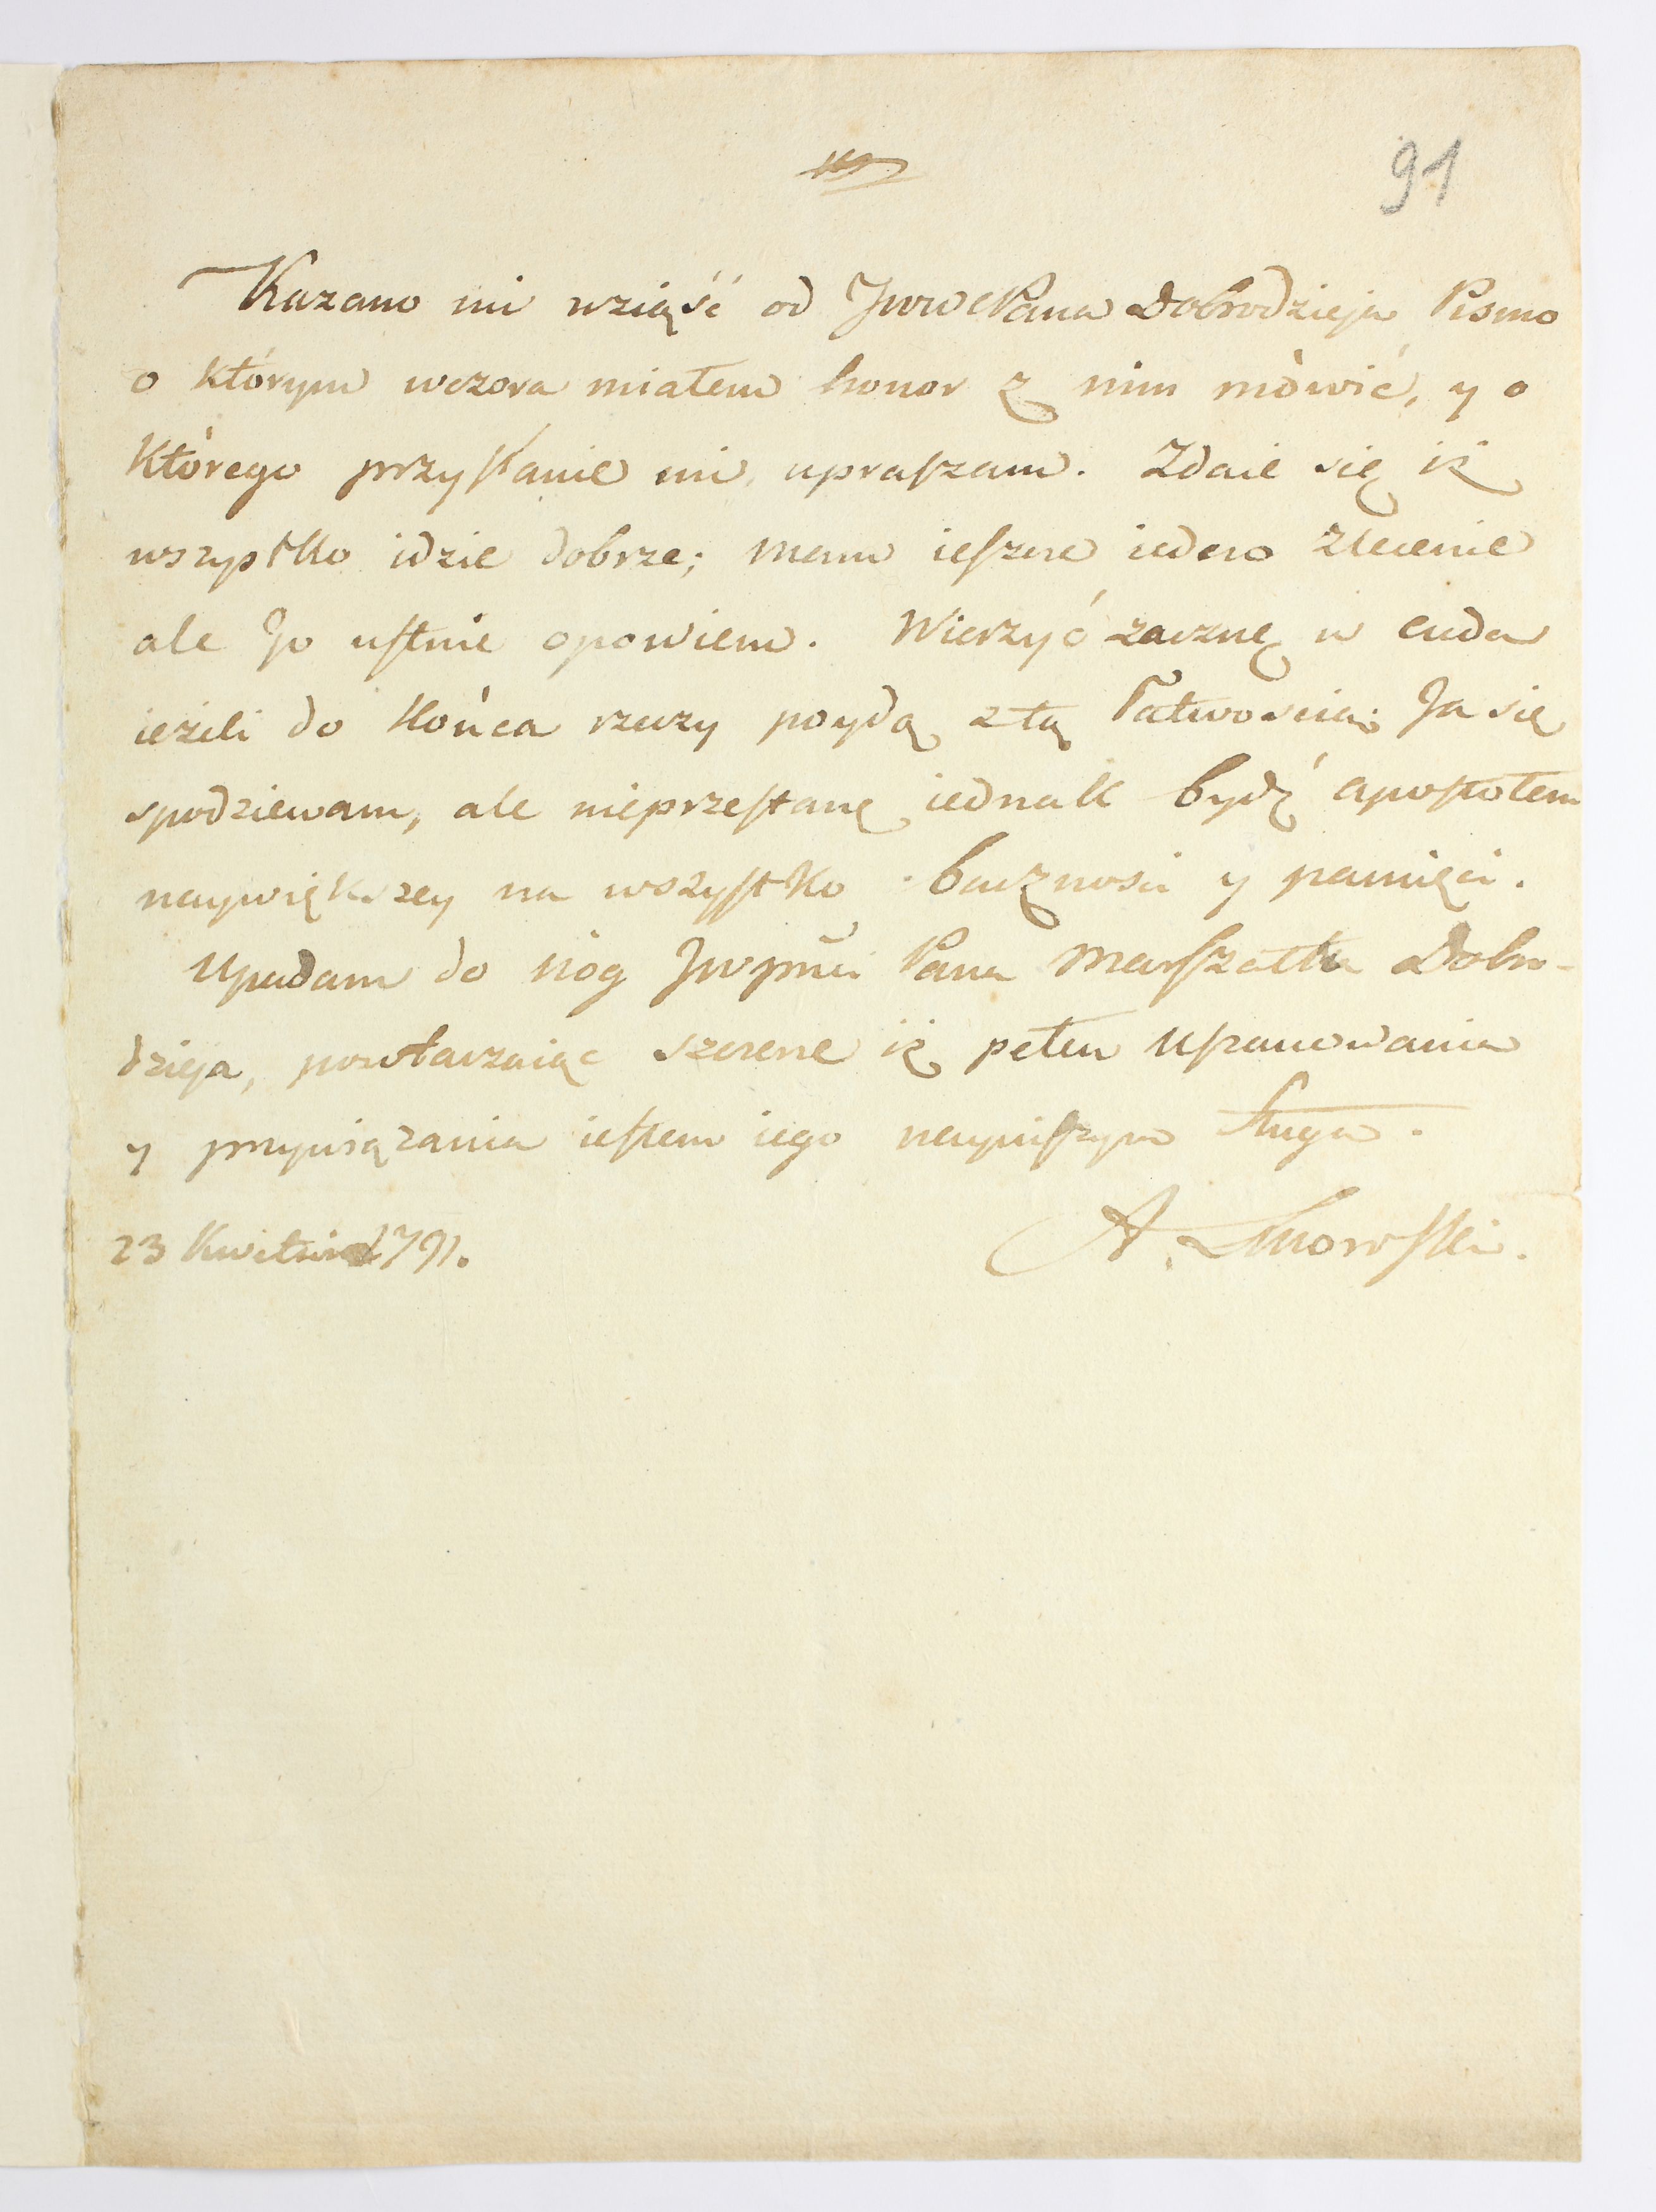 91
Kazano mi wziąść od JWW Pana Dobrodzieja Pismo
o którym wczora miałem honor z nim mówić, y o
którego przysłanie mi upraszam. Zdaie się iż
wszystko idzie dobrze; mam ieszcze iedno zlecenie
ale Jo ustnie opowiem. Wierzyć zacznę w cuda
ieżeli do końca rzeczy poydą z tą łatwością; Ja się
spodziewam, ale nieprzestanę iednak bydź apostołem
naywiększey na wszystko bacznosci y pamięci.
Upadam do nóg JWJmci Pana Marszałka Dobro-
dzieja, powtarzaiąc szczerze iż pełen uszanowania
y przywiązania iestem iego nayniższym sługą.
23 Kwietnia 1791.
A.